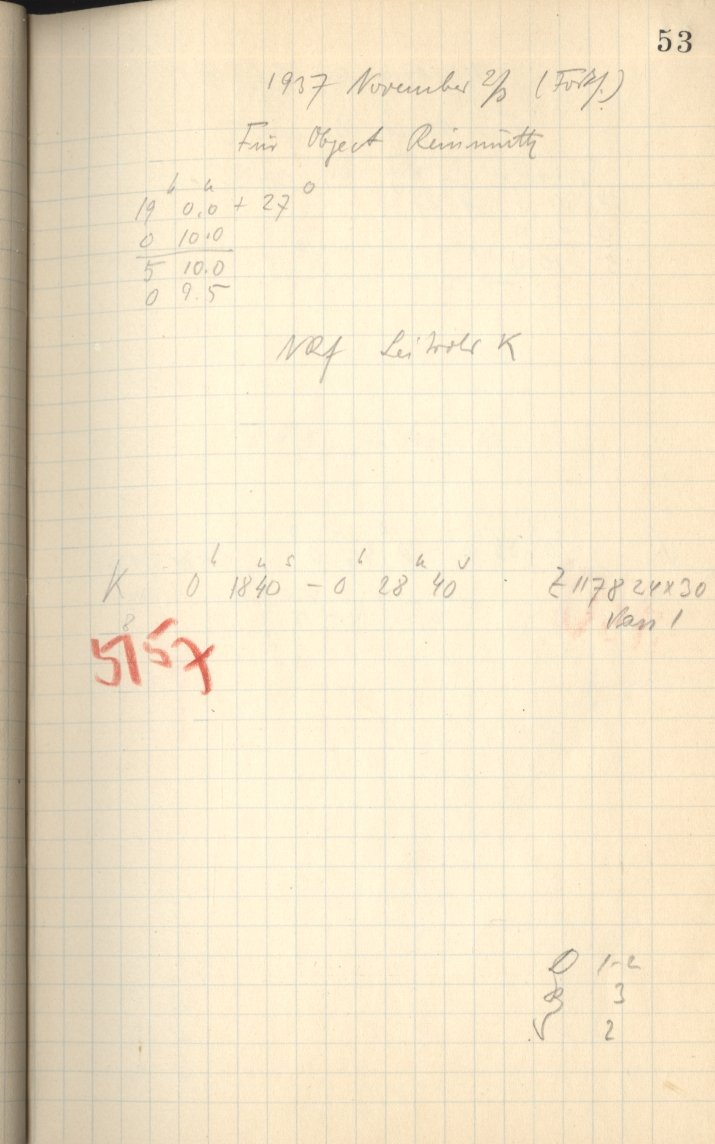 53
1937 November 2/3 (Forts.)
Für Object Reinmuth
19h 0.0m + 27°
0 10.0
5 10.0
0 9.5
NRf Leitrohr K
K 0h 18m 40s – 0h 28m 40s Z 1178 24x30
5157
1-2
3
2